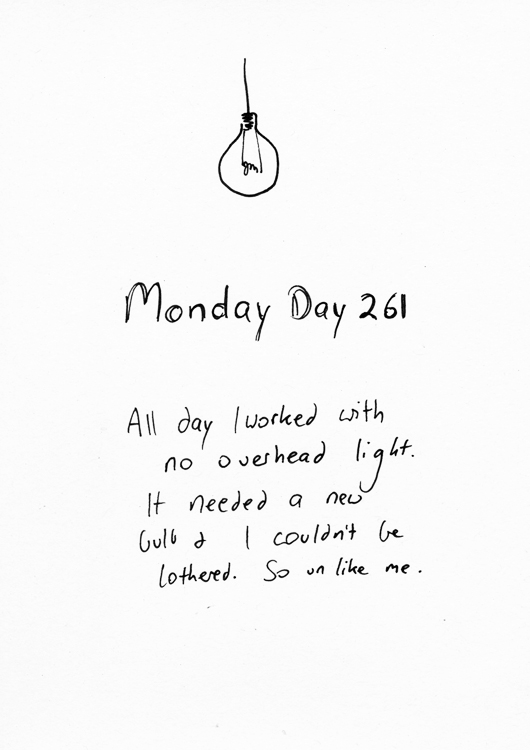 Monday Day 261
All day I worked with
no overhead light.
It needed a new
bulb & I couldn't be
bothered. So unlike me.